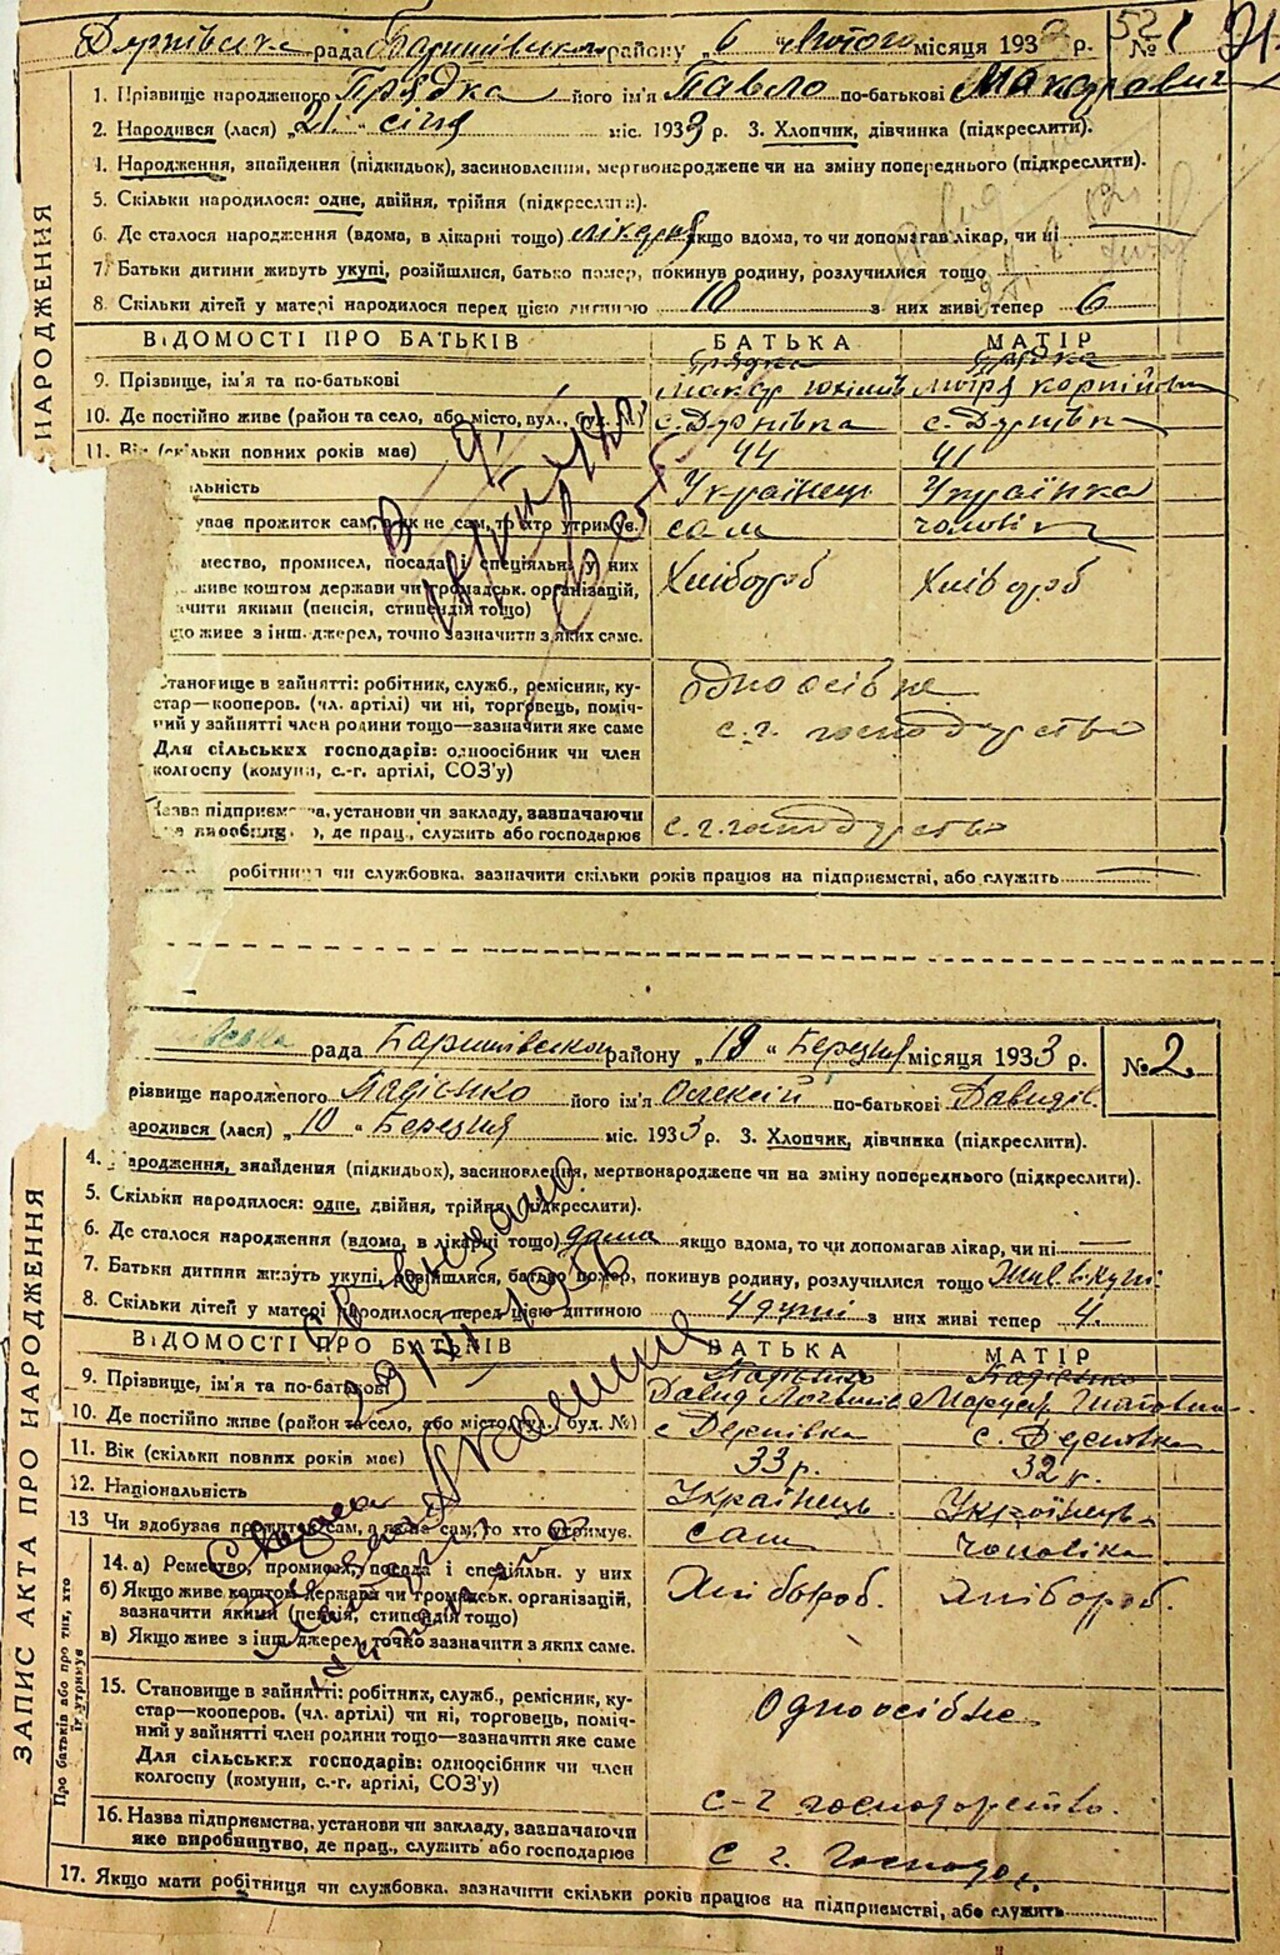 Дернівська рада Баришівського району „6 лютого місяця 1933 р. № 1
1. Прізвище народженого Прядка його ім'я Павло по-батькові Макарович
2. Народився (лася) „21 “ січня міс. 1933 р. 3. Хлопчик, дівчинка (підкреслити).
4. Народження, знайдення (підкидьок), засиновлення, мертвонароджене чи на зміну попереднього (підкреслити).
5. Скільки народилося: одне, двійня, трійня (підкреслити).
6. Де сталося народження (вдома, в лікарні тощо) лікарня якщо вдома, то чи допомагав лікар, чи ні
7. Батьки дитини живуть укупі, розійшлися, батько помер, покинув родину, розлучилися тощо
8. Скільки дітей у матері народилося перед цією дитиною 10 з них живі тепер 6
НАРОДЖЕННЯ
ВІДОМОСТІ ПРО БАТЬКІВ БАТЬКА МАТІР
Прядка Прядка
9. Прізвище, ім'я та по-батькові Макар Мотря Корнійовн
10. Де постійно живе (район та село, або місто, вул., буд. №) с. Дернівка с. Дернівка
11. Вік (скільки повних років має) 44 41
льність Українець Українка
ував прожиток сам, а як не сам, то хто утримує. сам чоловік
мество, промисел, посада і спеціяльн. у них Хлібороб Хлібороб
живе коштом держави чи громадськ. організацій,
ачити якими (пенсія, стипендія тощо)
що живе з інш. джерел, точно зазначити з яких саме.
Становище в зайнятті: робітник, служб., ремісник, ку- одноосібне
стар—кооперов. (чл. артілі) чи ні, торговець, поміч-
ний у зайнятті член родини тощо—зазначити яке саме с. г. господарство
Для сільських господарів: одноосібник чи член
колгоспу (комуни, с.-г. артілі, СОЗ'у)
Назва підприємства, установи чи закладу, зазначаючи
яке виробниц о, де прац., служить або господарює с. г. господарство
робітниця чи службовка, зазначити скільки років працює на підприємстві, або служить
рада Баришівського району „19 “ Березня місяця 1933 р. № 2
різвище народженого його ім'я Олексій по-батькові Давидів.
ародився (лася) „10 “ Березня міс. 1933 р. 3. Хлопчик, дівчинка (підкреслити).
4. Народження, знайдення (підкидьок), засиновлення, мертвонароджене чи на зміну попереднього (підкреслити).
5. Скільки народилося: одне, двійня, трійня (підкреслити).
6. Де сталося народження (вдома, в лікарні тощо) дома якщо вдома, то чи допомагав лікар, чи ні
7. Батьки дитини живуть укупі, розійшлися, батько помер, покинув родину, розлучилися тощо жив. вкупі
8. Скільки дітей у матері народилося перед цією дитиною 4 душі з них живі тепер 4.
ЗАПИС АКТА ПРО НАРОДЖЕННЯ
ВІДОМОСТІ ПРО БАТЬКІВ БАТЬКА МАТІР
9. Прізвище, ім'я та по-батькові Давид
10. Де постійно живе (район та село, або місто, вул., буд. №) с Дернівка с. Дернівка
11. Вік (скільки повних років має) 33 р. 32 р.
12. Національність Українець Українець
13 Чи здобуває прожиток сам, а як не сам, то хто утримує. сам чоловіка
Про батьків або про тих, хто їх утримує
14. а) Ремество, промисел, посада і спеціяльн. у них Хлібороб. Хлібороб.
б) Якщо живе коштом держави чи громадськ. організацій,
зазначити якими (пенсія, стипендія тощо)
в) Якщо живе з інш. джерел, точно зазначити з яких саме.
15. Становище в зайнятті: робітник, служб., ремісник, ку- Одноосібне
стар—кооперов. (чл. артілі) чи ні, торговець, поміч-
ний у зайнятті член родини тощо—зазначити яке саме
Для сільських господарів: одноосібник чи член
колгоспу (комуни, с.-г. артілі, СОЗ'у) с-г господарство.
16. Назва підприємства, установи чи закладу, зазначаючи
яке виробництво, де прац., служить або господарює с г. Господар.
17. Якщо мати робітниця чи службовка, зазначити скільки років працює на підприємстві, або служить